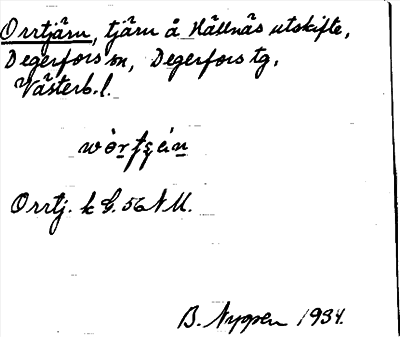 Orrtjärn, tjärn å Hällnäs utskifte,
Degerfors sn, Degerfors tg.
Västerb. l.
Orrtj. k G. 56 N M.
B. Nyppen 1934.